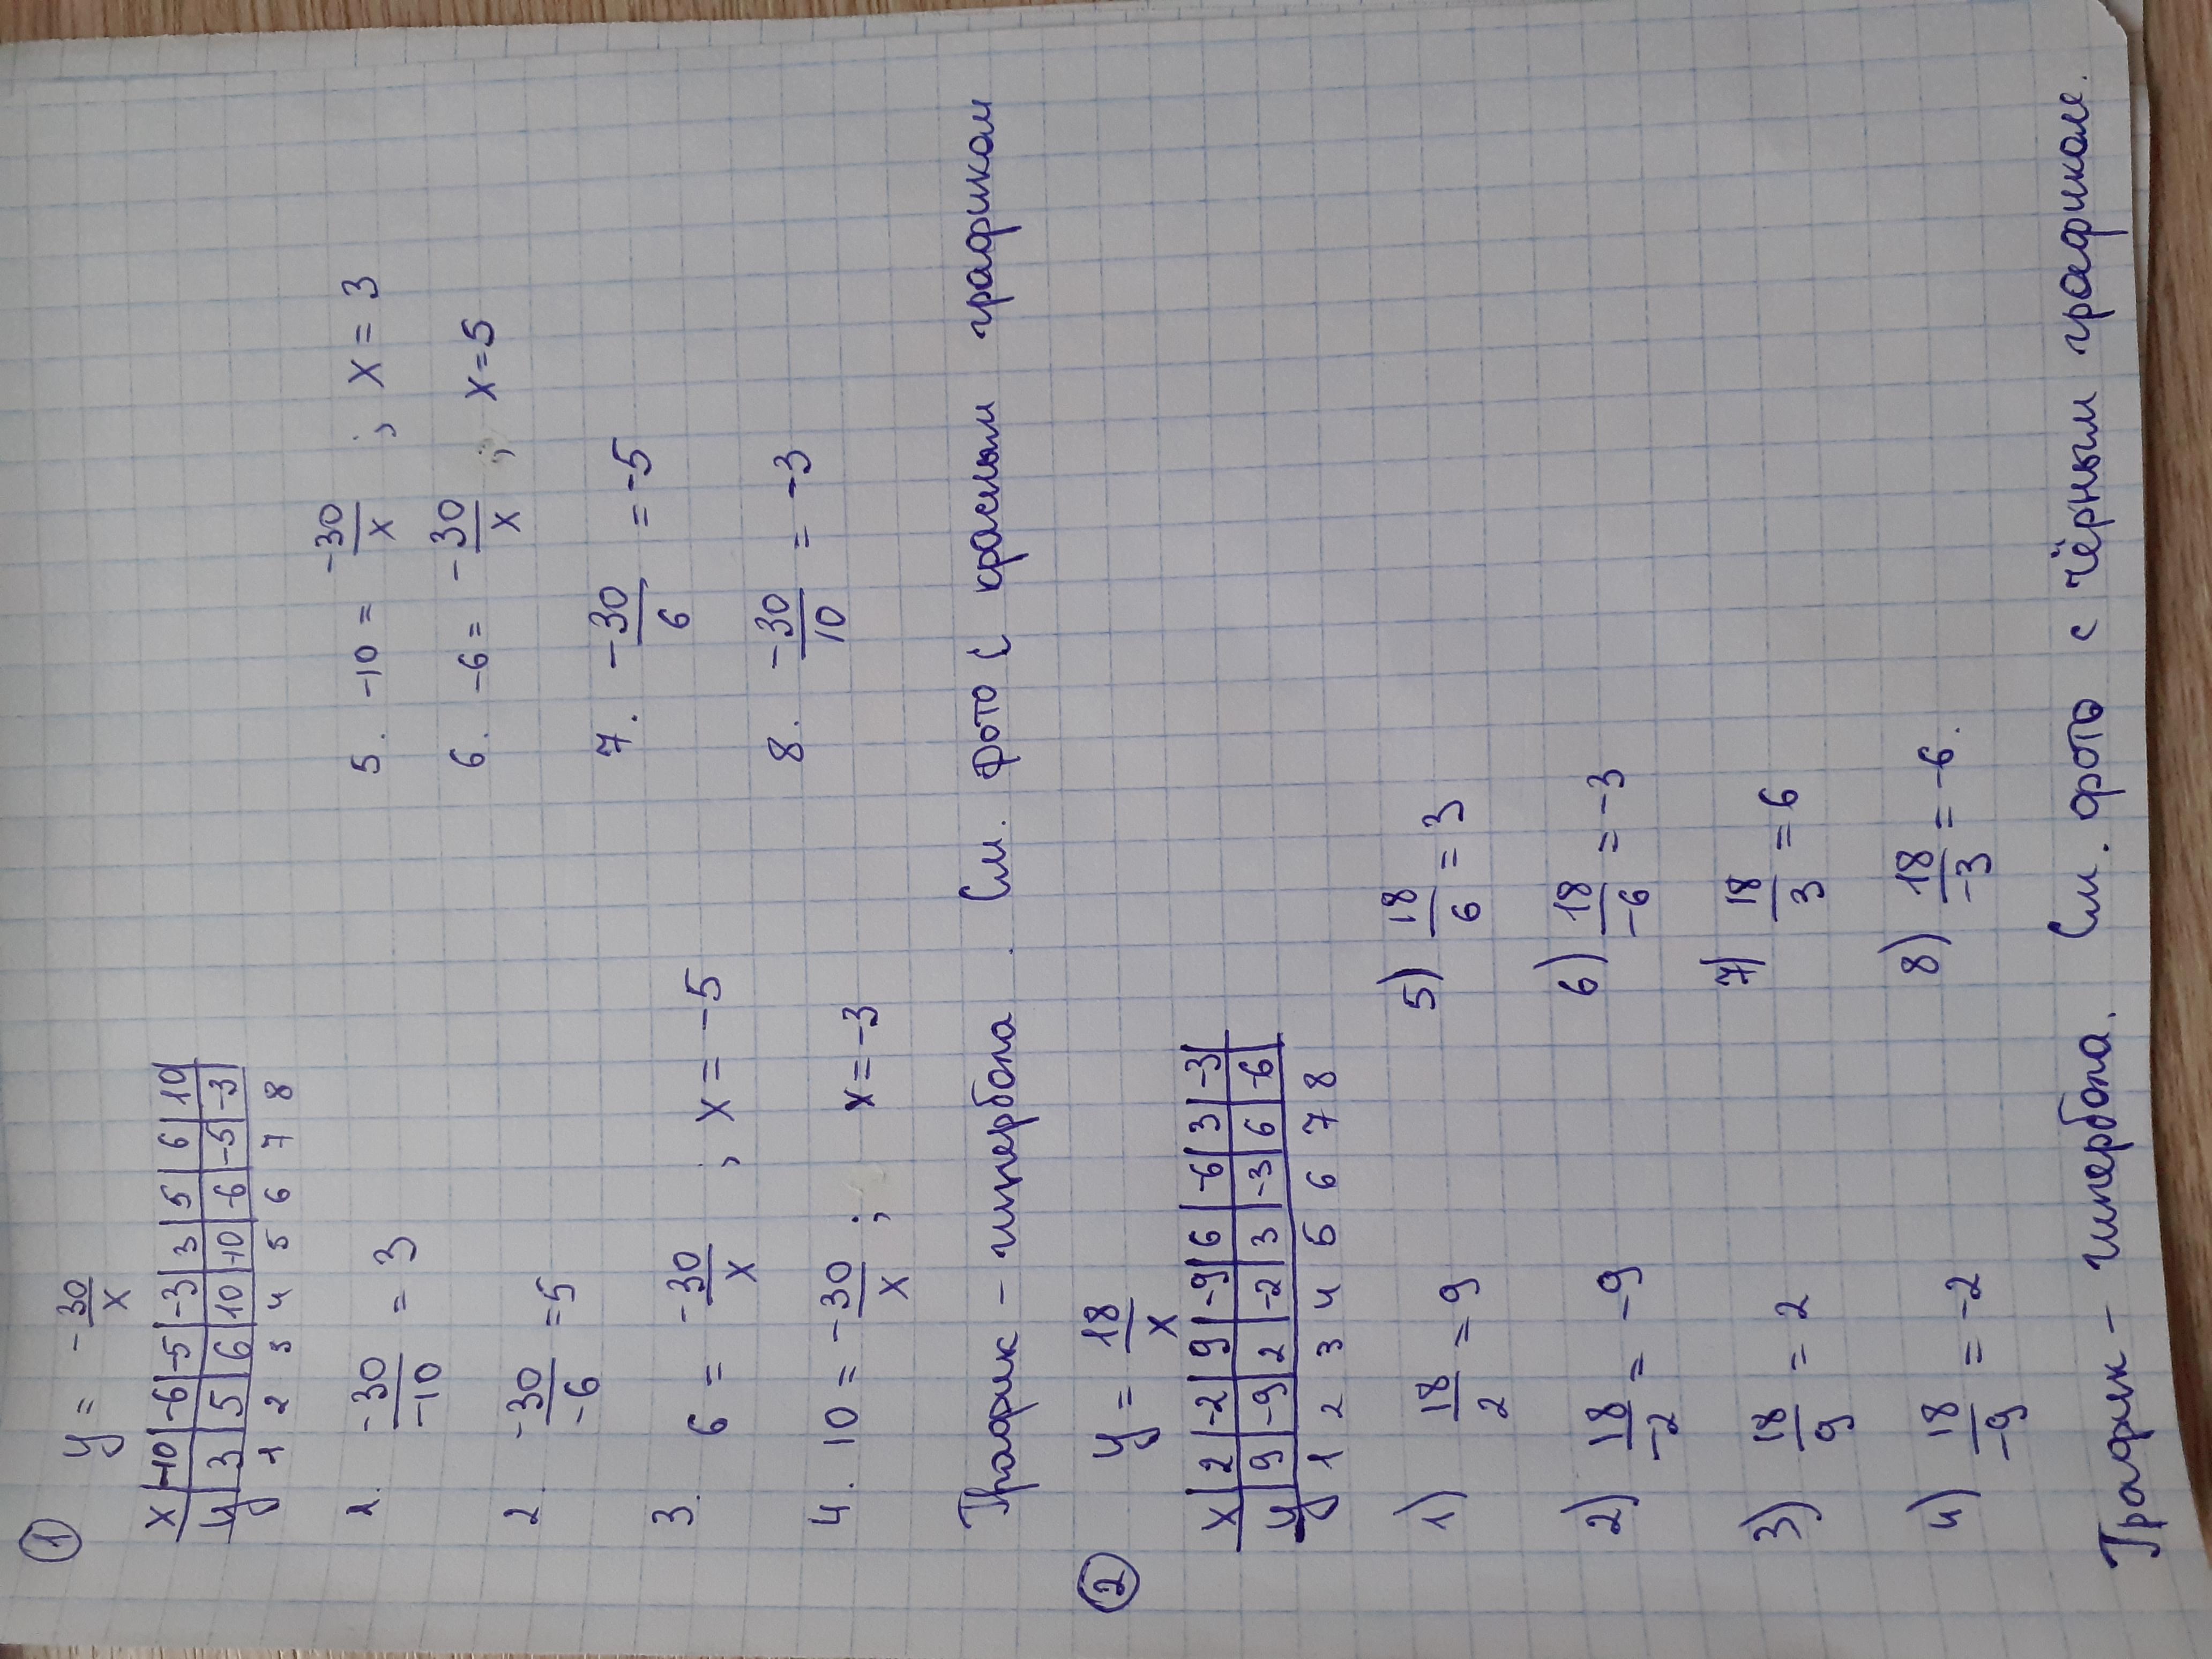 ① y = -30/x
x | -10 | -6 | -5 | -3 | 3 | 5 | 6 | 10
y | 3 | 5 | 6 | 10 | -10 | -6 | -5 | -3
1 2 3 4 5 6 7 8
1. -30/-10 = 3
2. -30/-6 = 5
3. 6 = -30/x ; x = -5
4. 10 = -30/x ; x = -3
5. -10 = -30/x ; x = 3
6. -6 = -30/x ; x = 5
7. -30/6 = -5
8. -30/10 = -3
График - гипербола. См. фото с красным графиком
② y = 18/x
x | 2 | -2 | 9 | -9 | 6 | -6 | 3 | -3
y | 9 | -9 | 2 | -2 | 3 | -3 | 6 | -6
1 2 3 4 5 6 7 8
1) 18/2 = 9
2) 18/-2 = -9
3) 18/9 = 2
4) 18/-9 = -2
5) 18/6 = 3
6) 18/-6 = -3
7) 18/3 = 6
8) 18/-3 = -6.
График - гипербола. См. фото с чёрным графиком.